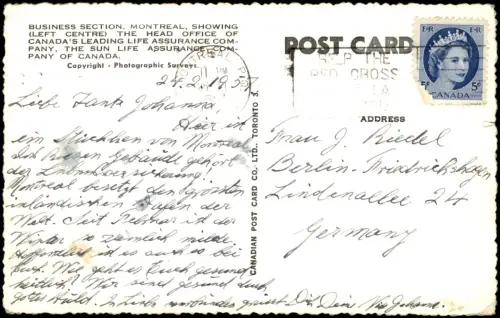 BUSINESS SECTION, MONTREAL, SHOWING
(LEFT CENTRE) THE HEAD OFFICE OF
CANADA'S LEADING LIFE ASSURANCE COM-
PANY, THE SUN LIFE ASSURANCE COM-
PANY OF CANADA.
Copyright - Photographic Surveys
POST CARD
MONTREAL
HELP THE
RED CROSS
CANADA
5¢
ADDRESS
CANADIAN POST CARD CO. LTD. TORONTO
24.2.1957
Liebe Tante Johanna
Hier ist
ein Stückchen von Montreal
Das Riesen Gebäude gehört
der Lebensversicherung!
Montreal besitzt den grössten
inländischen Hafen der
Welt. Seit Februar ist der
Winter so ziemlich milde
Hoffentlich ist es auch so bei
Euch. Wie geht es Euch gesund-
heitlich? Wir sind gesund und
guter
grüsst Dich Dein
Frau J. Riedel
Berlin-Friedrichshagen
Lindenallee 24
Germany